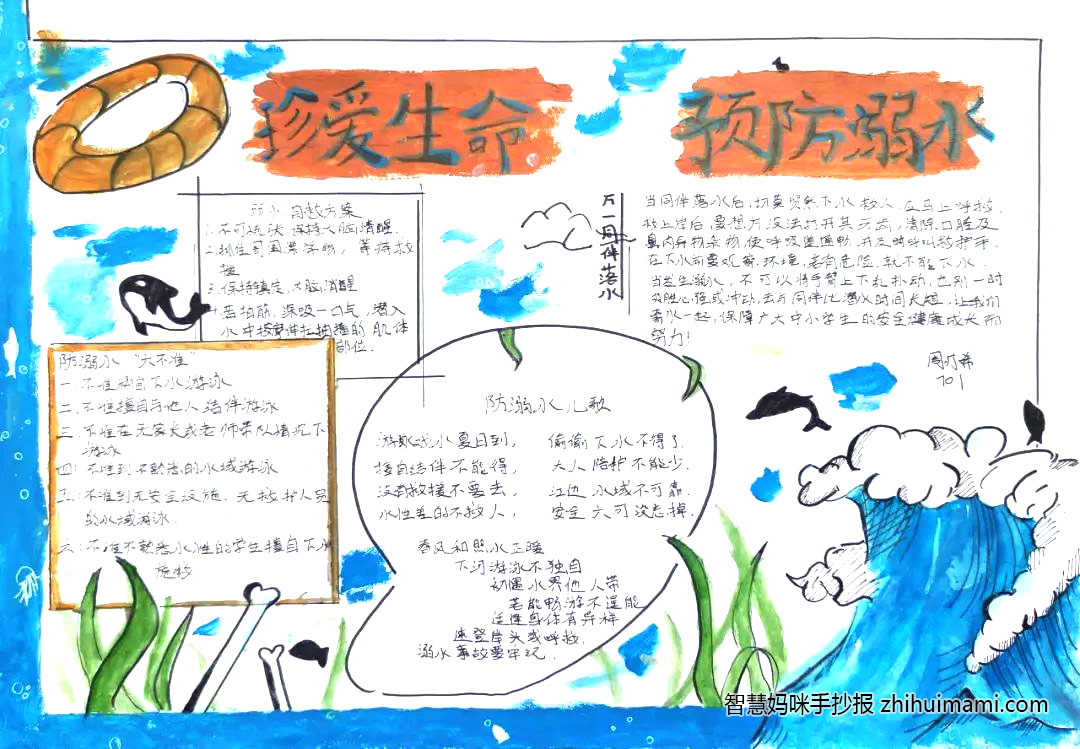 珍爱生命
预防溺水
溺水自救方案
1.不可慌张 保持大脑清醒
2.抓住周围漂浮物，等待救
援
3.保持镇定，大脑清醒
4.若抽筋，深吸一口气，潜入
水中按摩伸拉抽搐的肌体
部位．
万一同伴落水
当同伴落水后，切莫贸然下水救人，应马上呼救．
救上岸后，要想方设法打开其牙齿，清除口腔及
鼻内异物杂物，使呼吸道通畅，并及时呼叫救护车．
在下水前要观察环境，若有危险，就不能下水．
当发生溺水，不可以将手臂上下乱扑动，也别一时
好胜心强或冲动，去与同伴比潜水时间长短，让我们
携水一起，保障广大中小学生的安全健康成长而
努力！
701
防溺水 "六不准"
一．不准私自下水游泳
二．不准擅自与他人结伴游泳
三．不准在无家长或老师带队情况下
游泳
四．不准到不熟悉的水域游泳
五．不准到无安全设施，无救护人员
的水域游泳．
六．不准不熟悉水性的学生擅自下水
施救．
防溺水儿歌
游泳戏水夏日到， 偷偷下水不得了．
擅自结伴不能得， 大人陪护不能少．
没有救援不要去， 江边水域不可靠．
水性差的不救人， 安全六可没忘掉．
春风和照水正暖
下河游泳不独自
动遇水男他人带
若能畅游不逞能
连性身体有异样
速登岸头或呼救．
溺水事故要牢记．
智慧妈咪手抄报 zhihuimami.com